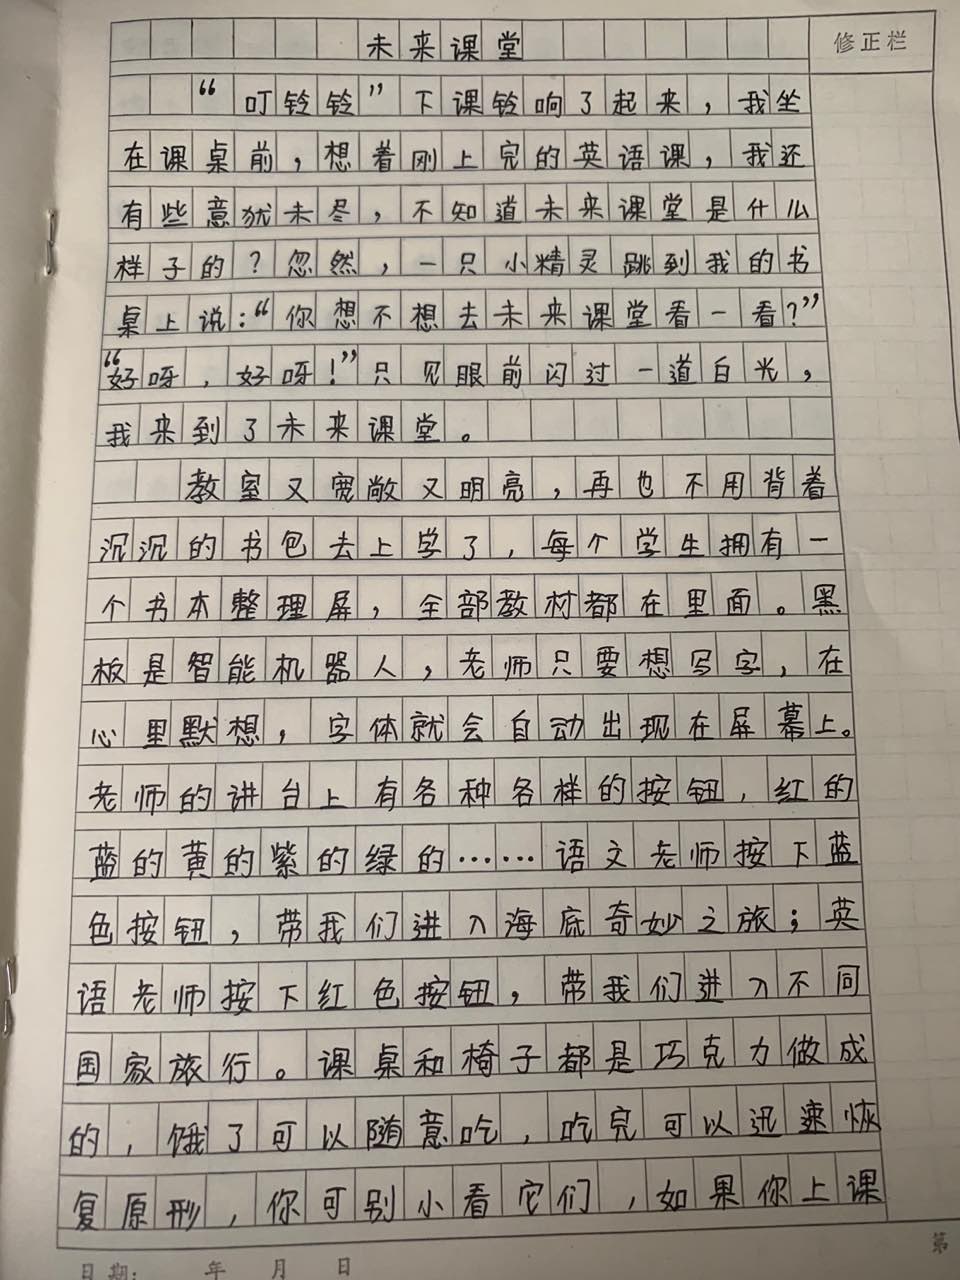 未来课堂
修正栏
“叮铃铃”下课铃响了起来，我坐
在课桌前，想着刚上完的英语课，我还
有些意犹未尽，不知道未来课堂是什么
样子的？忽然，一只小精灵跳到我的书
桌上说：“你想不想去未来课堂看一看？”
“好呀，好呀！”只见眼前闪过一道白光，
我来到了未来课堂。
教室又宽敞又明亮，再也不用背着
沉沉的书包去上学了，每个学生拥有一
个书本整理屏，全部教材都在里面。黑
板是智能机器人，老师只要想写字，在
心里默想，字体就会自动出现在屏幕上。
老师的讲台上有各种各样的按钮，红的
蓝的黄的紫的绿的……语文老师按下蓝
色按钮，带我们进入海底奇妙之旅；英
语老师按下红色按钮，带我们进入不同
国家旅行。课桌和椅子都是巧克力做成
的，饿了可以随意吃，吃完可以迅速恢
复原形，你可别小看它们，如果你上课
日期： 年 月 日
第